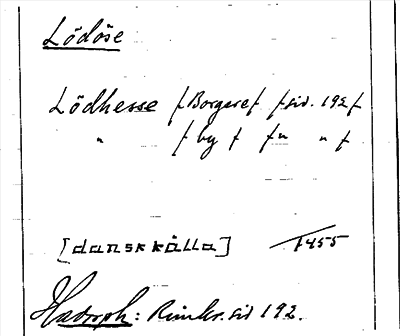 Lödöse
Lödhesse [Borgare] [sid. 192]
" [by] [" "]
[dansk källa] 1455
Hadorph: Rimkr. sid 192.